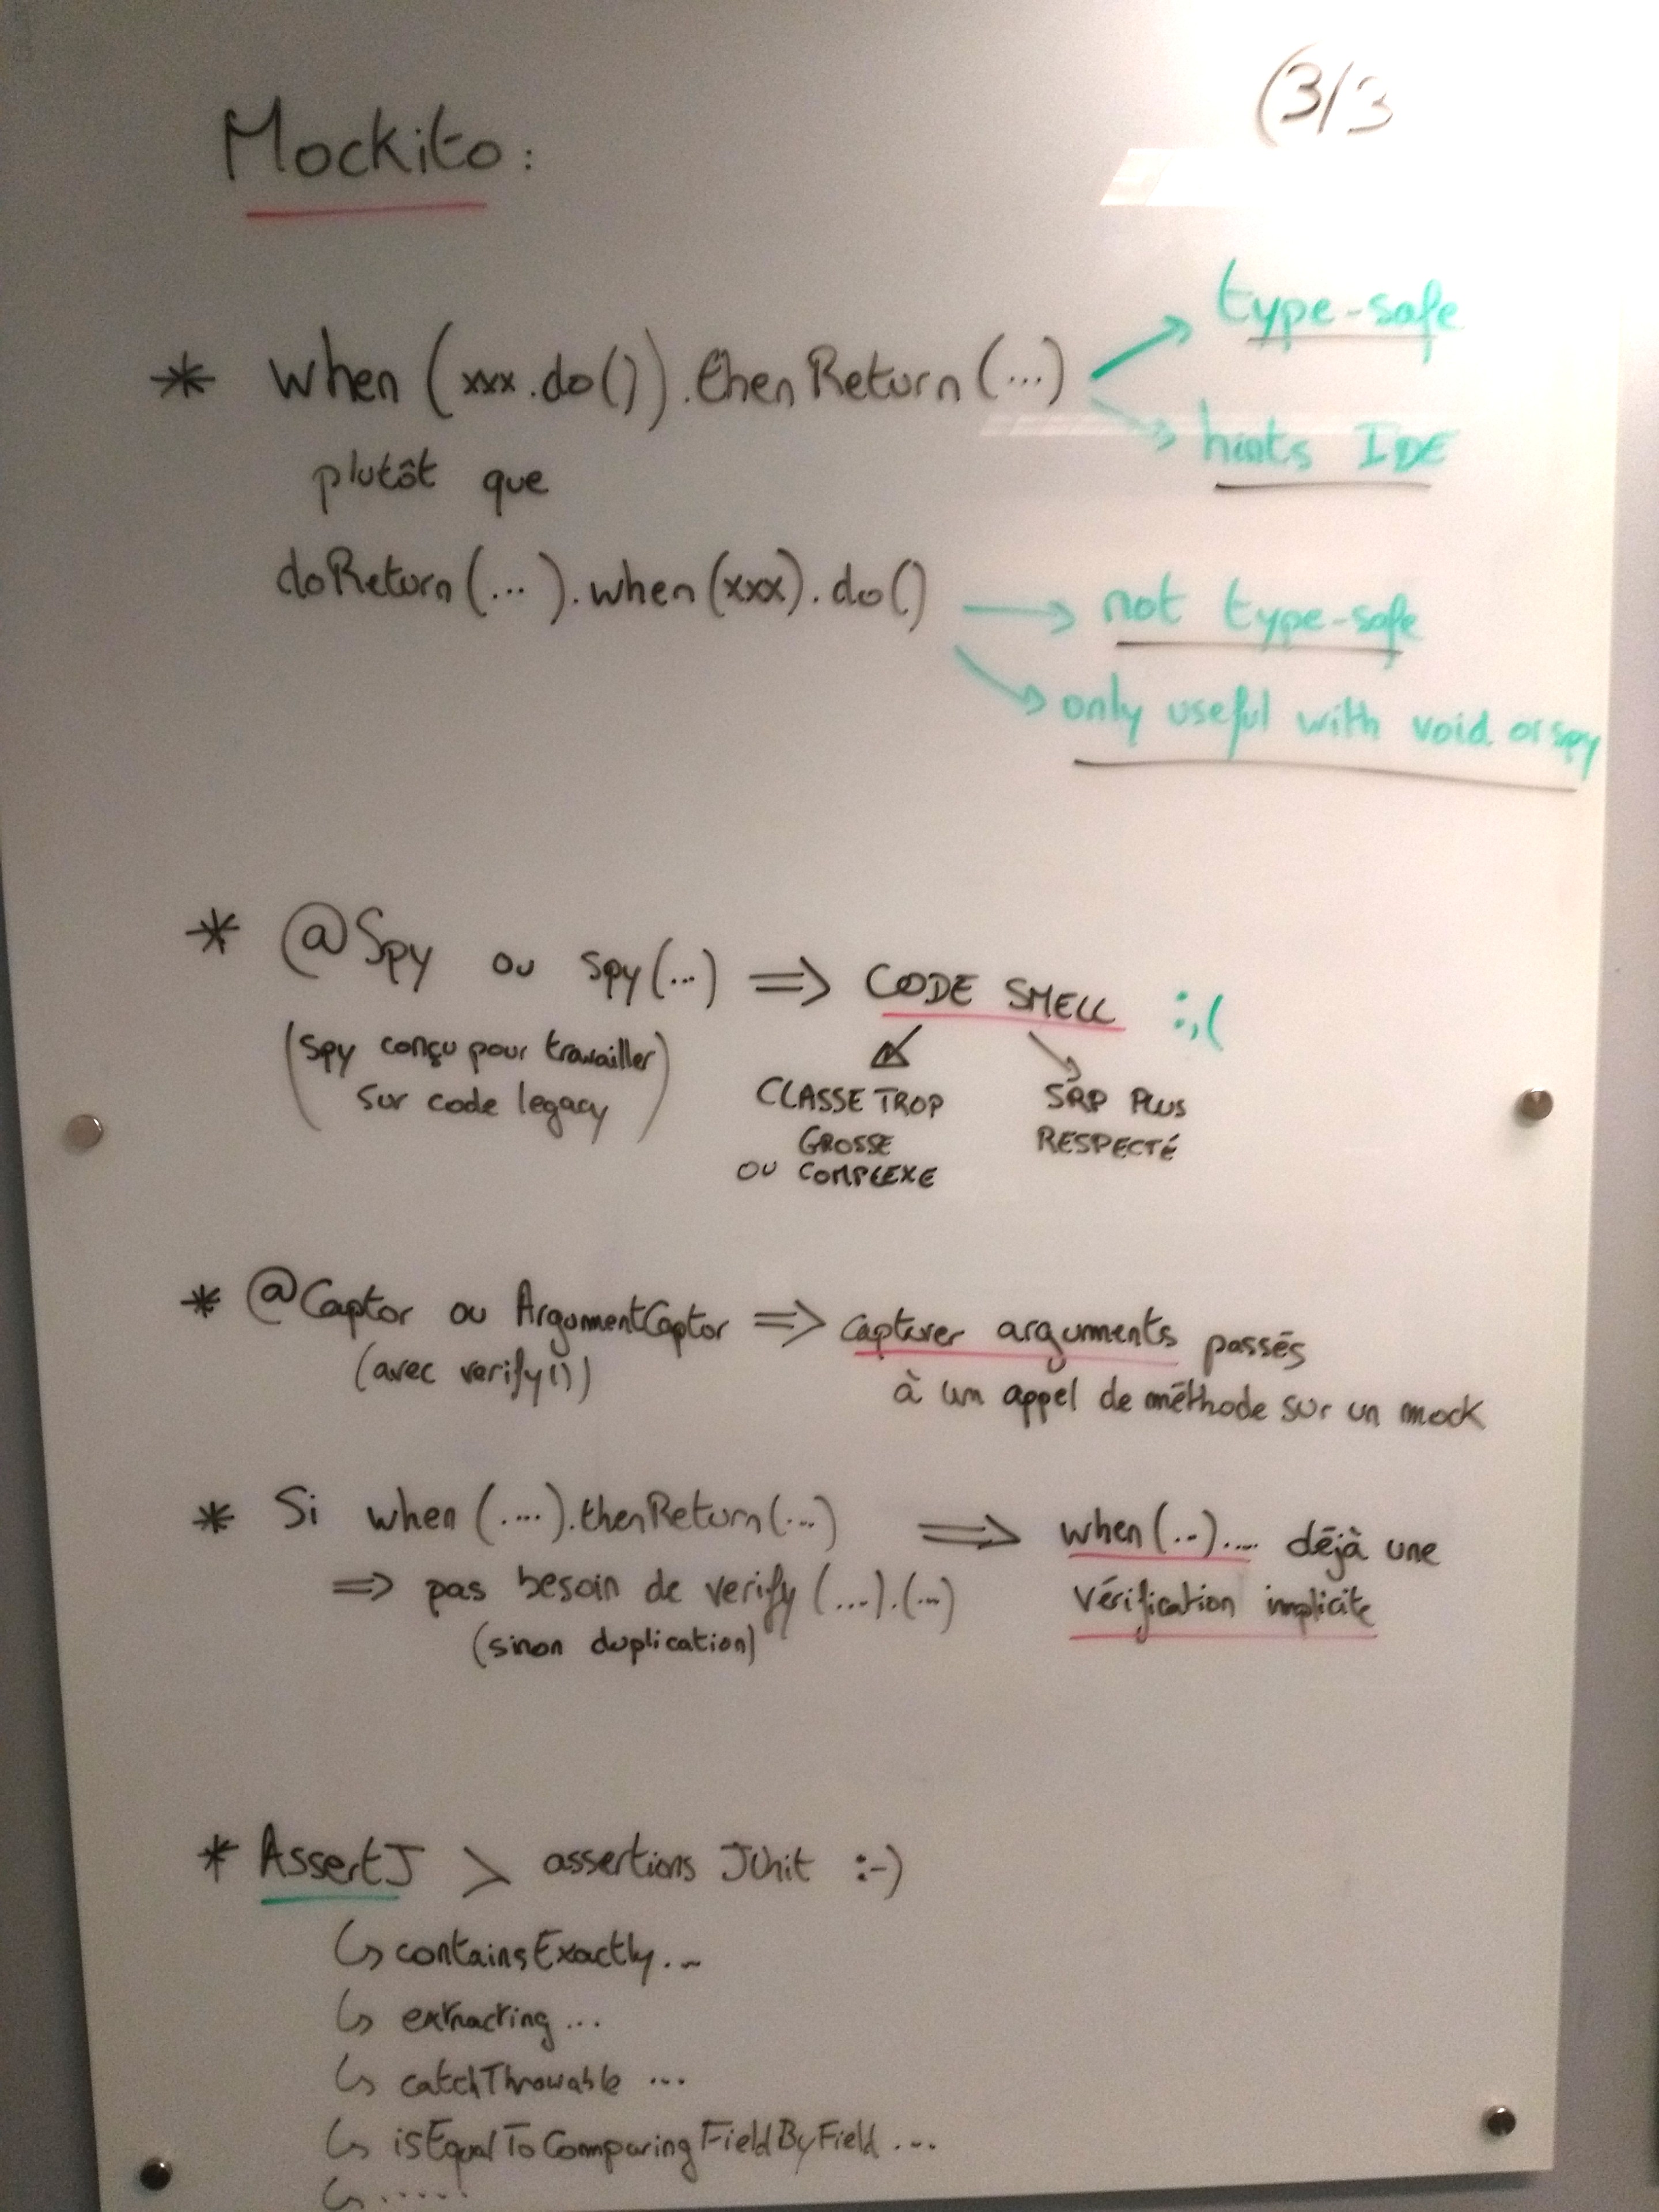 (3/3
Mockito :
* when (xxx.do()).thenReturn(...)
type-safe
hints IDE
plutôt que
doReturn(...).when(xxx).do()
not type-safe
only useful with void or spy
* @Spy ou spy(...) => CODE SMELL :,(
(Spy conçu pour travailler
sur code legacy)
CLASSE TROP
GROSSE
OU COMPLEXE
SRP PLUS
RESPECTÉ
* @Captor ou ArgumentCaptor => capturer arguments passés
(avec verify())
à un appel de méthode sur un mock
* Si when (....).thenReturn(...) => when(..).... déjà une
=> pas besoin de verify (...).(...)
vérification implicite
(sinon duplication)
* AssertJ > assertions JUnit :-)
↳ containsExactly...
↳ extracting...
↳ catchThrowable ...
↳ isEqualToComparingFieldByField ...
↳ .....